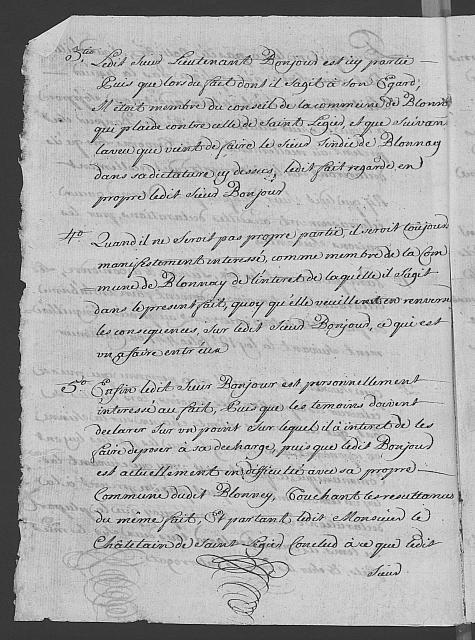 3tio Ledit Sieur Lieutenant Bonjour est icy partie
Puis que lors du fait dont il s'agit à son Egard;
Il étoit membre du conseil de la commune de Blonnay
qui plaide contre celle de Saint Legier, et que suivan
laveu que vient de faire le Sieur Sindic de Blonnay
dans sa dictature cy dessus, ledit fait regarde, en
propre ledit Sieur Bonjour
4o Quand il ne Seroit pas propre partie, il seroit toujours
manifestement interessé, comme membre de la Com
mune de Blonnay de l'interet de laquelle il s'agit
dans le present fait, quoy qu'elle veuille en renvers
les consequences, Sur ledit Sieur Bonjour, ce qui est
un afaire entr'eux
5o Enfin ledit Sieur Bonjour est personnellement
interessé au fait, Puis que les temoins doivent
declarer Sur un point Sur lequel il à interet de les
faire deposer à sa decharge, puis que ledit Bonjour
est actuellement en difficulté avec sa propre
Commune dudit Blonney, Touchant les resultances
du même fait, Et partant ledit Monsieur le
Châtelain de Saint Legier Conclud à ce que ledit
Sieur